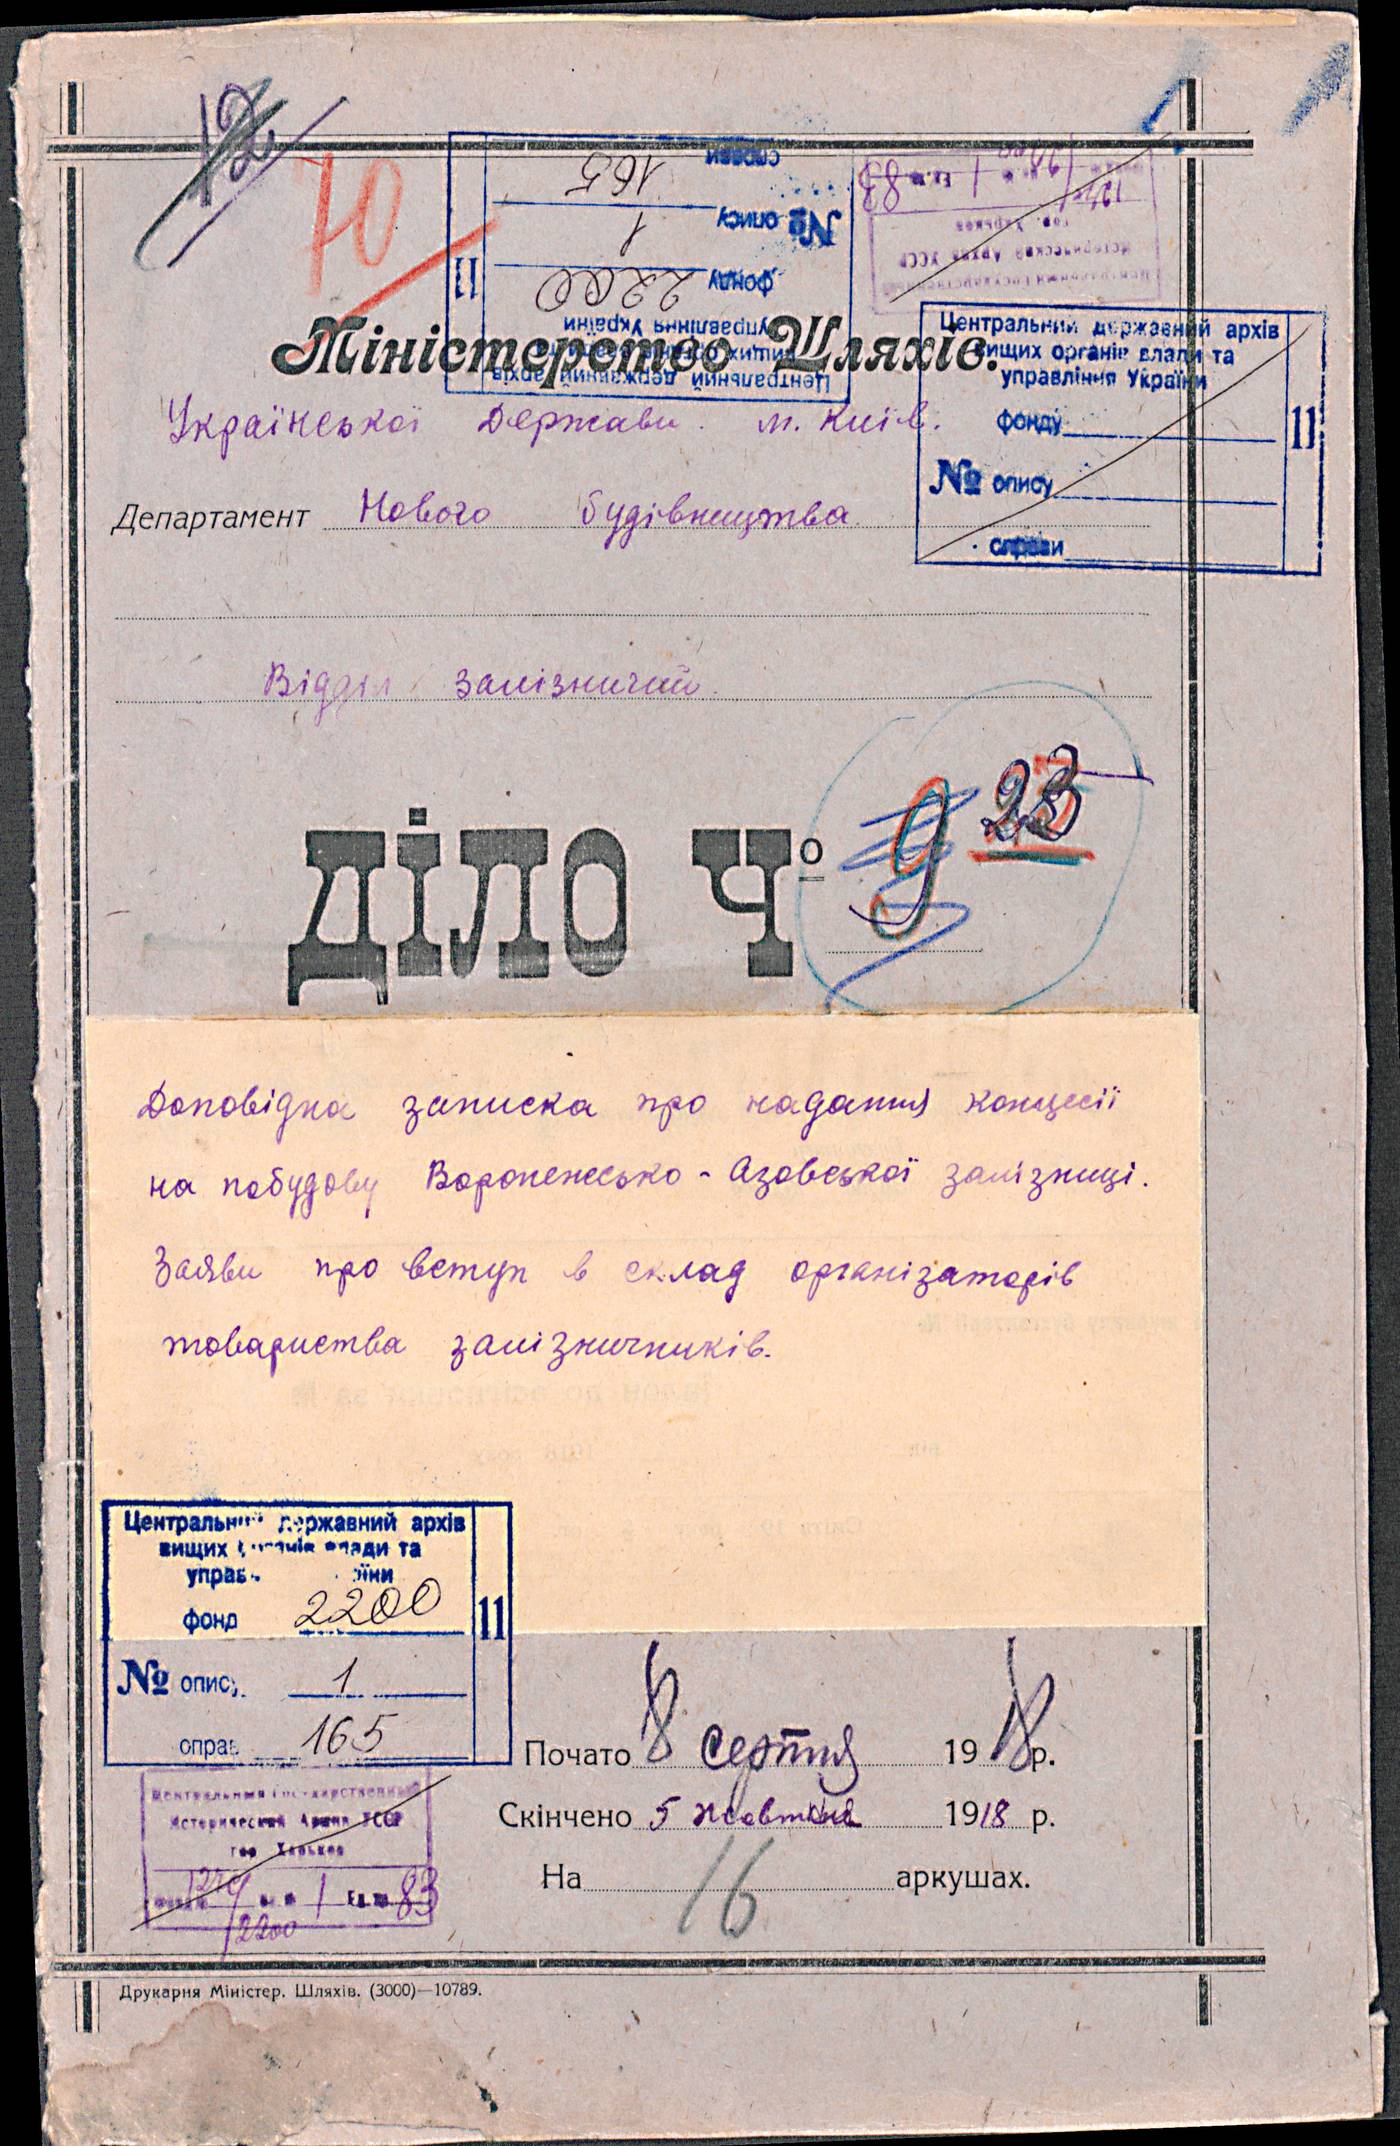 12
70
справи 165
№ опису 1
фонду 2200
11
Центральний державний архів
вищих органів влади та
управління України
Центральный Государственный
Исторический Архив УССР
гор. Харьков
Ед. № 83
Міністерство Шляхів.
Української Держави. м. Київ.
Центральний державний архів
вищих органів влади та
управління України
фонду
№ опису
справи
11
Департамент Нового будівництва.
Відділ залізничний.
ДІЛО Ч⁰ 9 23
Доповідна записка про надання концесії
на побудову Воронежсько-Азовської залізниці.
Заяви про вступ в склад організаторів
товариства залізничників.
Центральний державний архів
вищих органів влади та
фонд 2200
№ опису 1
справ 165
11
Почато 8 серпня 1918 р.
Скінчено 5 жовтня 1918 р.
На 16 аркушах.
Центральный Государственный
Исторический Архив УССР
гор Харьков
оп. № 1 Ед. хр. 83
2200
Друкарня Міністер. Шляхів. (3000)—10789.